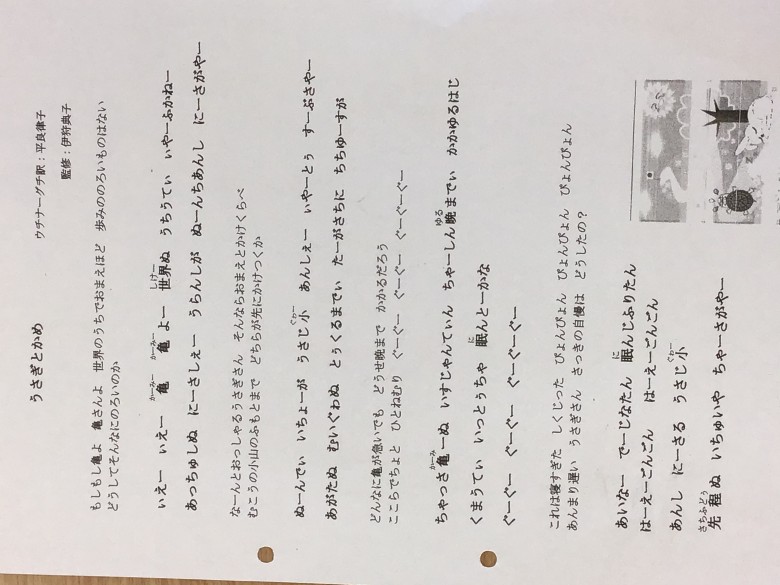 うさぎとかめ
ウチナーグチ訳：平良律子
監修：伊狩典子
もしもし亀よ 亀さんよ 世界のうちでおまえほど 歩みののろいものはない
どうしてそんなにのろいのか
いえー いえー 亀 亀 よー 世界ぬ うちうてぃ いやーふかねー
かーみー かーみー しけー
あっちゅしぬ にーさしぇー うらんしが ぬーんちあんし にーさがやー
なーんとおっしゃるうさぎさん そんならおまえとかけくらべ
むこうの小山のふもとまで どちらが先にかけつくか
ぬーんでぃ いちょーが うさじ小 あんしぇー いやーとぅ すーぶさやー
ぐゎー
あがたぬ むいぐゎぬ とぅくるまでぃ たーがさちに ちちゅーすが
どんなに亀が急いでも どうせ晩まで かかるだろう
ここらでちょっと ひとねむり ぐーぐー ぐーぐー ぐーぐーぐー
ちゃっさ亀ーぬ いすじゃんてぃん ちゃーしん晩までぃ かかゆるはじ
かーみ ゆる
くまうてぃ いっとぅちゃ 眠んとーかな
に
ぐーぐー ぐーぐー ぐーぐー ぐーぐーぐー
これは寝すぎた しくじった ぴょんぴょん ぴょんぴょん ぴょんぴょん
あんまり遅い うさぎさん さっきの自慢は どうしたの？
あいなー でーじなたん 眠んじふりたん
に
はーえーごんごん はーえーごんごん
あんし にーさる うさじ小
ぐゎー
先程ぬ いちゅいや ちゃーさがやー
さちふどぅ